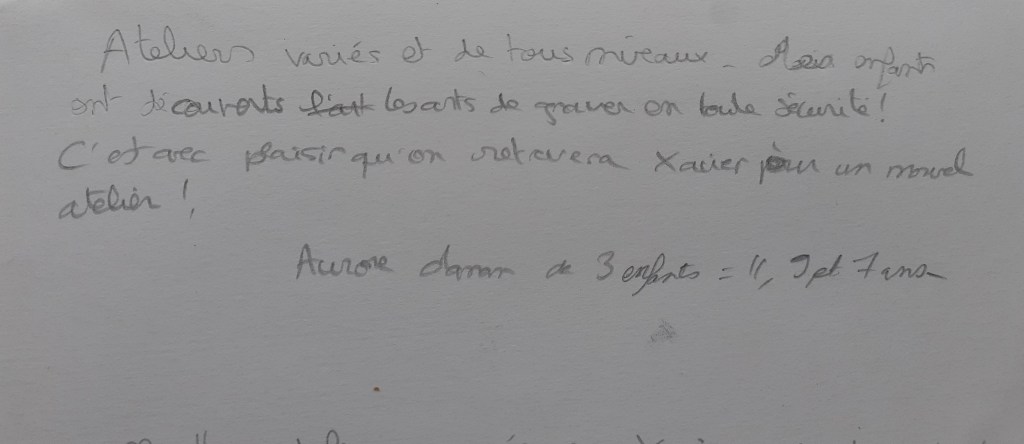 Ateliers variés et de tous niveaux. Mes enfants
ont découverts les arts de graver en toute sécurité !
C'est avec plaisir qu'on retrevera Xavier pour un nouvel
atelier !
Aurore maman de 3 enfants = 11, 9 et 7 ans